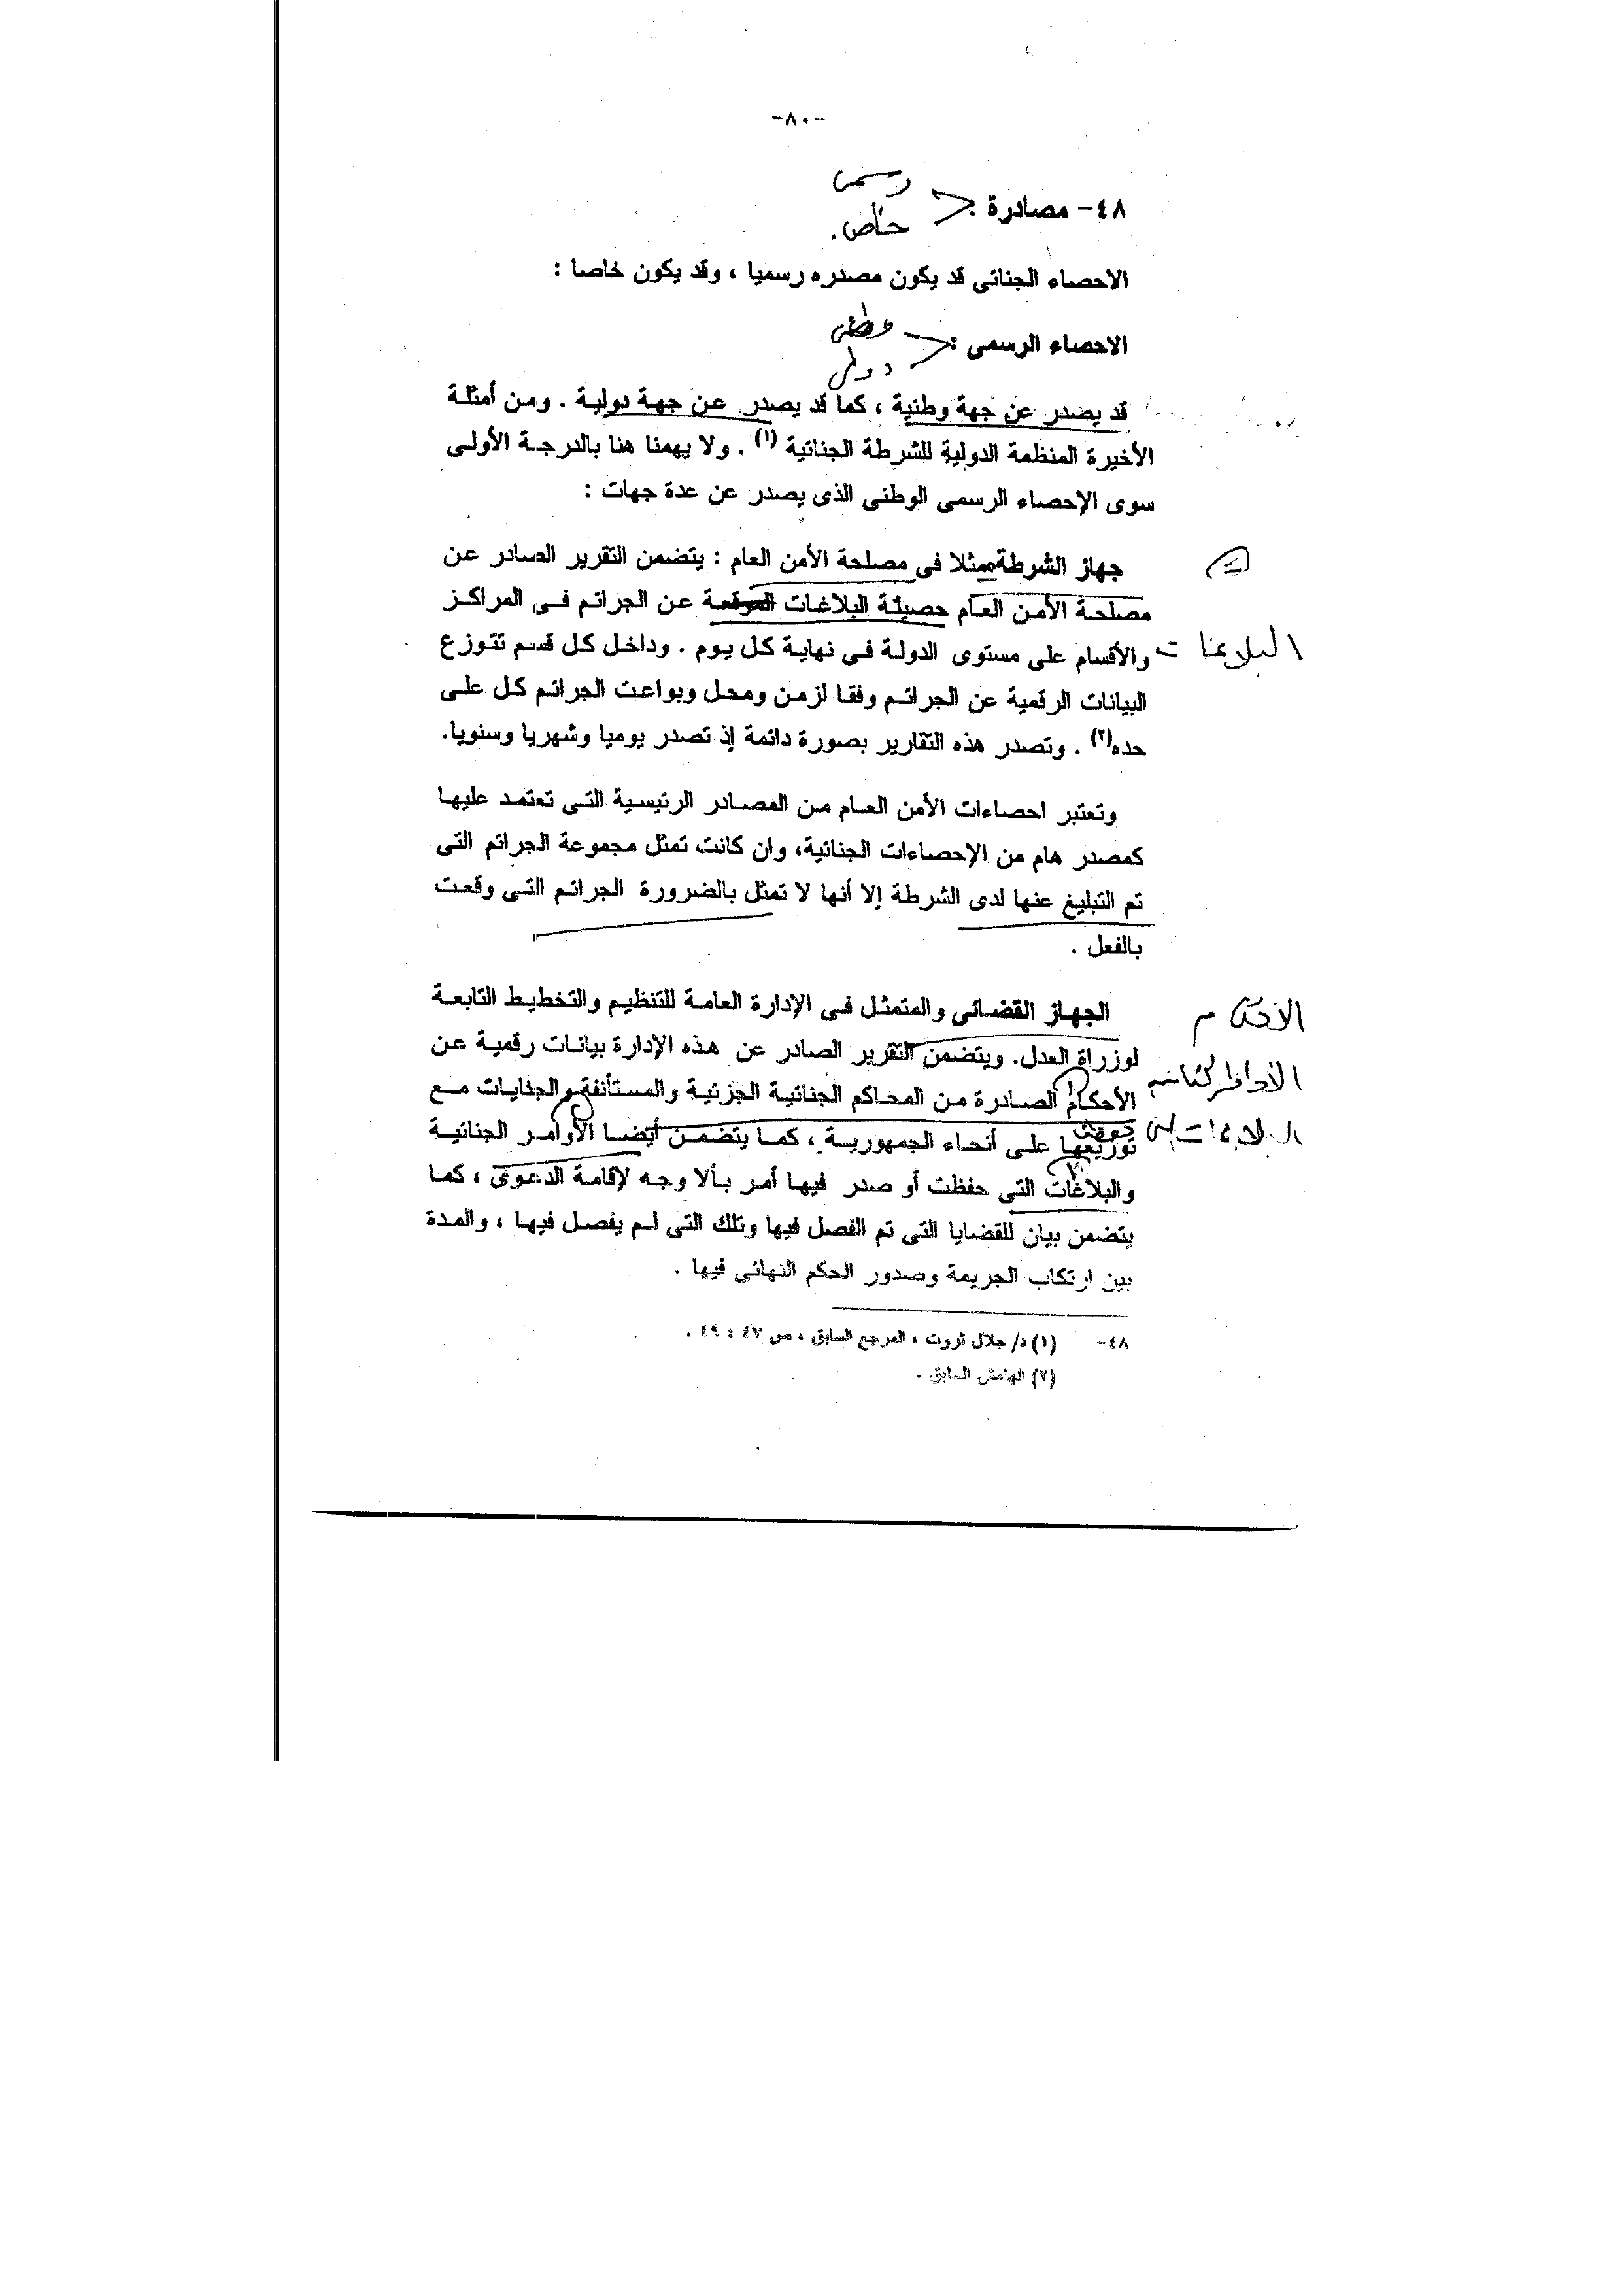 -٨٠-
رسمى
٤٨- مصادرة :
خاص .
الاحصاء الجنائى قد يكون مصدره رسميا ، وقد يكون خاصا :
وطنى
الاحصاء الرسمى :
دولى
قد يصدر عن جهة وطنية ، كما قد يصدر عن جهة دولية . ومن أمثلة
الأخيرة المنظمة الدولية للشرطة الجنائية (١) . ولا يهمنا هنا بالدرجة الأولى
سوى الإحصاء الرسمى الوطنى الذى يصدر عن عدة جهات :
جهاز الشرطة ممثلا فى مصلحة الأمن العام : يتضمن التقرير الصادر عن
مصلحة الأمن العام حصيلة البلاغات عن الجرائم فى المراكز
البلاغات
والأقسام على مستوى الدولة فى نهاية كل يوم . وداخل كل قسم تتوزع
البيانات الرقمية عن الجرائم وفقا لزمن ومحل وبواعت الجرائم كل على
حده(٢) . وتصدر هذه التقارير بصورة دائمة إذ تصدر يوميا وشهريا وسنويا.
وتعتبر احصاءات الأمن العام من المصادر الرئيسية التى تعتمد عليها
كمصدر هام من الإحصاءات الجنائية، وان كانت تمثل مجموعة الجرائم التى
تم التبليغ عنها لدى الشرطة إلا أنها لا تمثل بالضرورة الجرائم التى وقعت
بالفعل .
الأحكام
الجهاز القضائى والمتمثل فى الإدارة العامة للتنظيم والتخطيط التابعة
لوزراة العدل. ويتضمن التقرير الصادر عن هذه الإدارة بيانات رقمية عن
الأحكام الصادرة من المحاكم الجنائية الجزئية والمستأنفة والجنايات مع
توزيعها على أنحاء الجمهورية ، كما يتضمن أيضا الأوامر الجنائية
والبلاغات التى حفظت أو صدر فيها أمر بألا وجه لإقامة الدعوى ، كما
يتضمن بيان للقضايا التى تم الفصل فيها وتلك التى لم يفصل فيها ، والمدة
بين ارتكاب الجريمة وصدور الحكم النهائى فيها .
٤٨- (١) د/ جلال ثروت ، المرجع السابق ، ص ٤٧ : ٤٩ .
(٢) الهامش السابق .